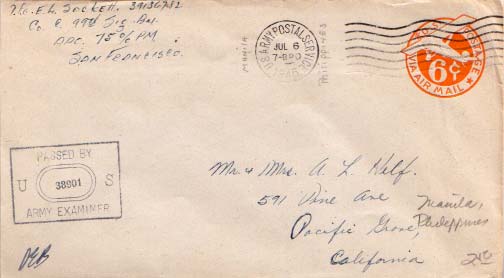 39136712
Co. C. 99th Sig. Bn.
APO. 75 % PM
SAN FRANCISCO.
MANILA
U.S. ARMY POSTAL SERVICE
JUL 6
1945
PHILIPPINES
POSTAGE
6¢
VIA AIR MAIL
PASSED BY
U 38901 S
ARMY EXAMINER
Mr & Mrs. A. L. Helf.
591 Pine Ave
Pacific Grove,
California
Manila,
Philippines